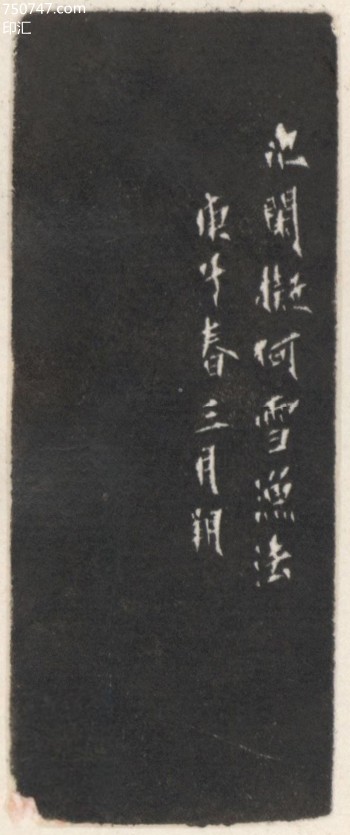 750747.com
印汇
汜閑擬何雪漁法
庚午春三月朔